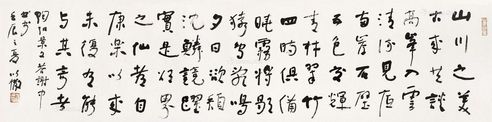 山川之美
古來共談
高峯入雲
清流見底
两岸石壁
五色交輝
青林翠竹
四時俱備
曉霧將歇
猿鳥亂鳴
夕日欲頹
沉鱗競躍
實是欲界
之仙都自
康樂以來
未復有能
與其奇者
陶弘景答謝中
書書
之夏